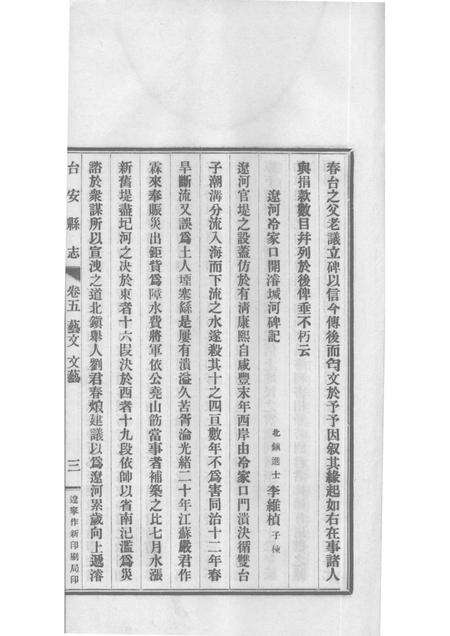 春台之父老議立碑以信今傳後而匄文於予予因叙其緣起如右在事諸人
與捐款數目并列於後俾垂不朽云
遼河冷家口開濬城河碑記
北鎮進士李維楨子棟
遼河官堤之設蓋仿於有清康熙自咸豐末年西岸由冷家口門潰決循雙台
子潮溝分流入海而下流之水遂殺其十之四亘數年不為害同治十二年春
旱斷流又誤為土人堙塞繇是屢有潰溢久苦胥淪光緒二十年江蘇嚴君作
霖來奉賑災出鉅貲為障水費將軍依公堯山飭當事者補築之比七月水漲
新舊堤盡圮河之決於東者十六段決於西者十九段依帥以省南汜濫為災
諮於衆謀所以宣洩之道北鎮舉人劉君春烺建議以為遼河累歲向上遞濬
台安縣志
卷五藝文
文藝
三
遼寧作新印刷局印